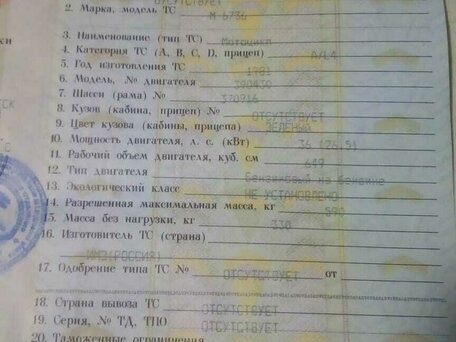 ОТСУТСТВУЕТ
2. Марка, модель ТС М 6736
3. Наименование (тип ТС) Мотоцикл
4. Категория ТС (А, В, С, D, прицеп) А/L4
5. Год изготовления ТС 1991
6. Модель, № двигателя
7. Шасси (рама) № 320916
8. Кузов (кабина, прицеп) № ОТСУТСТВУЕТ
9. Цвет кузова (кабины, прицепа) ЗЕЛЕНЫЙ
10. Мощность двигателя, л. с. (кВт) 36 (26.5)
11. Рабочий объем двигателя, куб. см 649
12. Тип двигателя Бензиновый на бензине
13. Экологический класс НЕ УСТАНОВЛЕНО
14. Разрешенная максимальная масса, кг 590
15. Масса без нагрузки, кг 330
16. Изготовитель ТС (страна)
ИМЗ(РОССИЯ)
17. Одобрение типа ТС № ОТСУТСТВУЕТ от
18. Страна вывоза ТС ОТСУТСТВУЕТ
19. Серия, № ТД, ТПО ОТСУТСТВУЕТ
20. Таможенные ограничения